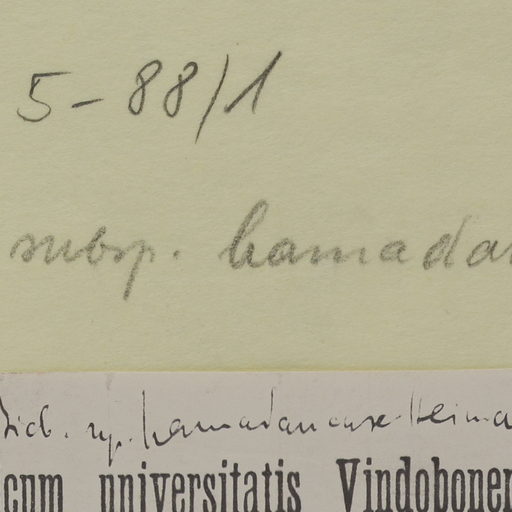 5-88/1
subsp. hamadan
sp. hamadanense
cum universitatis Vindobonen